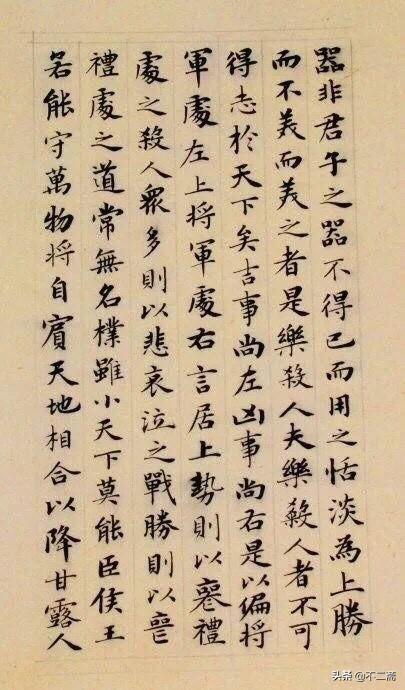 器非君子之器不得已而用之恬淡為上勝
而不美而美之者是樂殺人夫樂殺人者不可
得志於天下矣吉事尚左凶事尚右是以偏將
軍處左上將軍處右言居上勢則以喪禮
處之殺人眾多則以悲哀泣之戰勝則以喪
禮處之道常無名樸雖小天下莫能臣侯王
若能守萬物將自賓天地相合以降甘露人
头条@不二斋